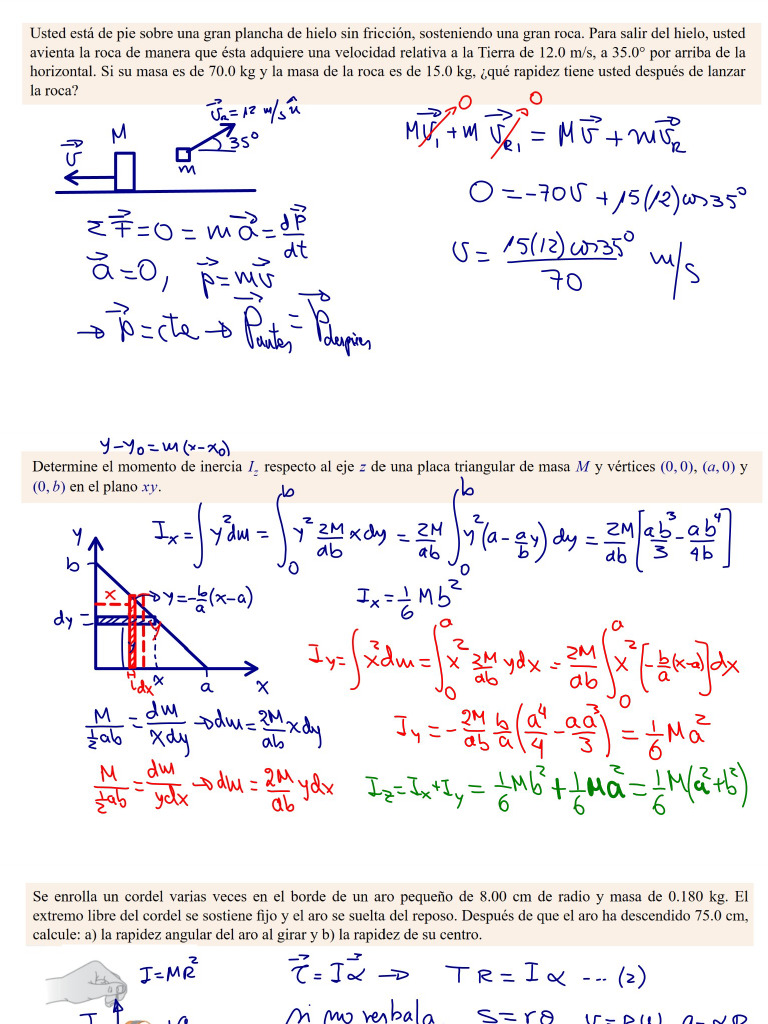 Usted está de pie sobre una gran plancha de hielo sin fricción, sosteniendo una gran roca. Para salir del hielo, usted
avienta la roca de manera que ésta adquiere una velocidad relativa a la Tierra de 12.0 m/s, a 35.0° por arriba de la
horizontal. Si su masa es de 70.0 kg y la masa de la roca es de 15.0 kg, ¿qué rapidez tiene usted después de lanzar
la roca?
v⃗_R = 12 m/s û
35°
M
m
v⃗
ΣF⃗ = 0 = ma⃗ = dp⃗/dt
a⃗ = 0, p⃗ = mv⃗
→ p⃗ = cte → P⃗antes = P⃗después
0 0
Mv⃗₁ + m v⃗_R₁ = Mv⃗ + mv⃗_R
0 = -70v + 15(12)cos35°
v = 15(12)cos35° / 70 m/s
y-y₀ = m(x-x₀)
Determine el momento de inercia I_z respecto al eje z de una placa triangular de masa M y vértices (0,0), (a,0) y
(0,b) en el plano xy.
I_x = ∫y²dm = ∫₀ᵇ y² 2M/ab x dy = 2M/ab ∫₀ᵇ y²(a - a/b y) dy = 2M/ab [ab³/3 - ab⁴/4b]
I_x = 1/6 Mb²
y
b
x
y = -b/a (x-a)
dy
y
dx
x
a
x
I_y = ∫x²dm = ∫₀ᵃ x² 2M/ab ydx = 2M/ab ∫₀ᵃ x² [-b/a (x-a)]dx
I_y = -2M/ab b/a (a⁴/4 - aa³/3) = 1/6 Ma²
M / ½ab = dm / xdy → dm = 2M/ab xdy
M / ½ab = dm / ydx → dm = 2M/ab ydx
I_z = I_x + I_y = 1/6 Mb² + 1/6 Ma² = 1/6 M(a²+b²)
Se enrolla un cordel varias veces en el borde de un aro pequeño de 8.00 cm de radio y masa de 0.180 kg. El
extremo libre del cordel se sostiene fijo y el aro se suelta del reposo. Después de que el aro ha descendido 75.0 cm,
calcule: a) la rapidez angular del aro al girar y b) la rapidez de su centro.
I = MR²
τ⃗ = Iα⃗ → TR = Iα ... (2)
T
si no resbala
s = rθ